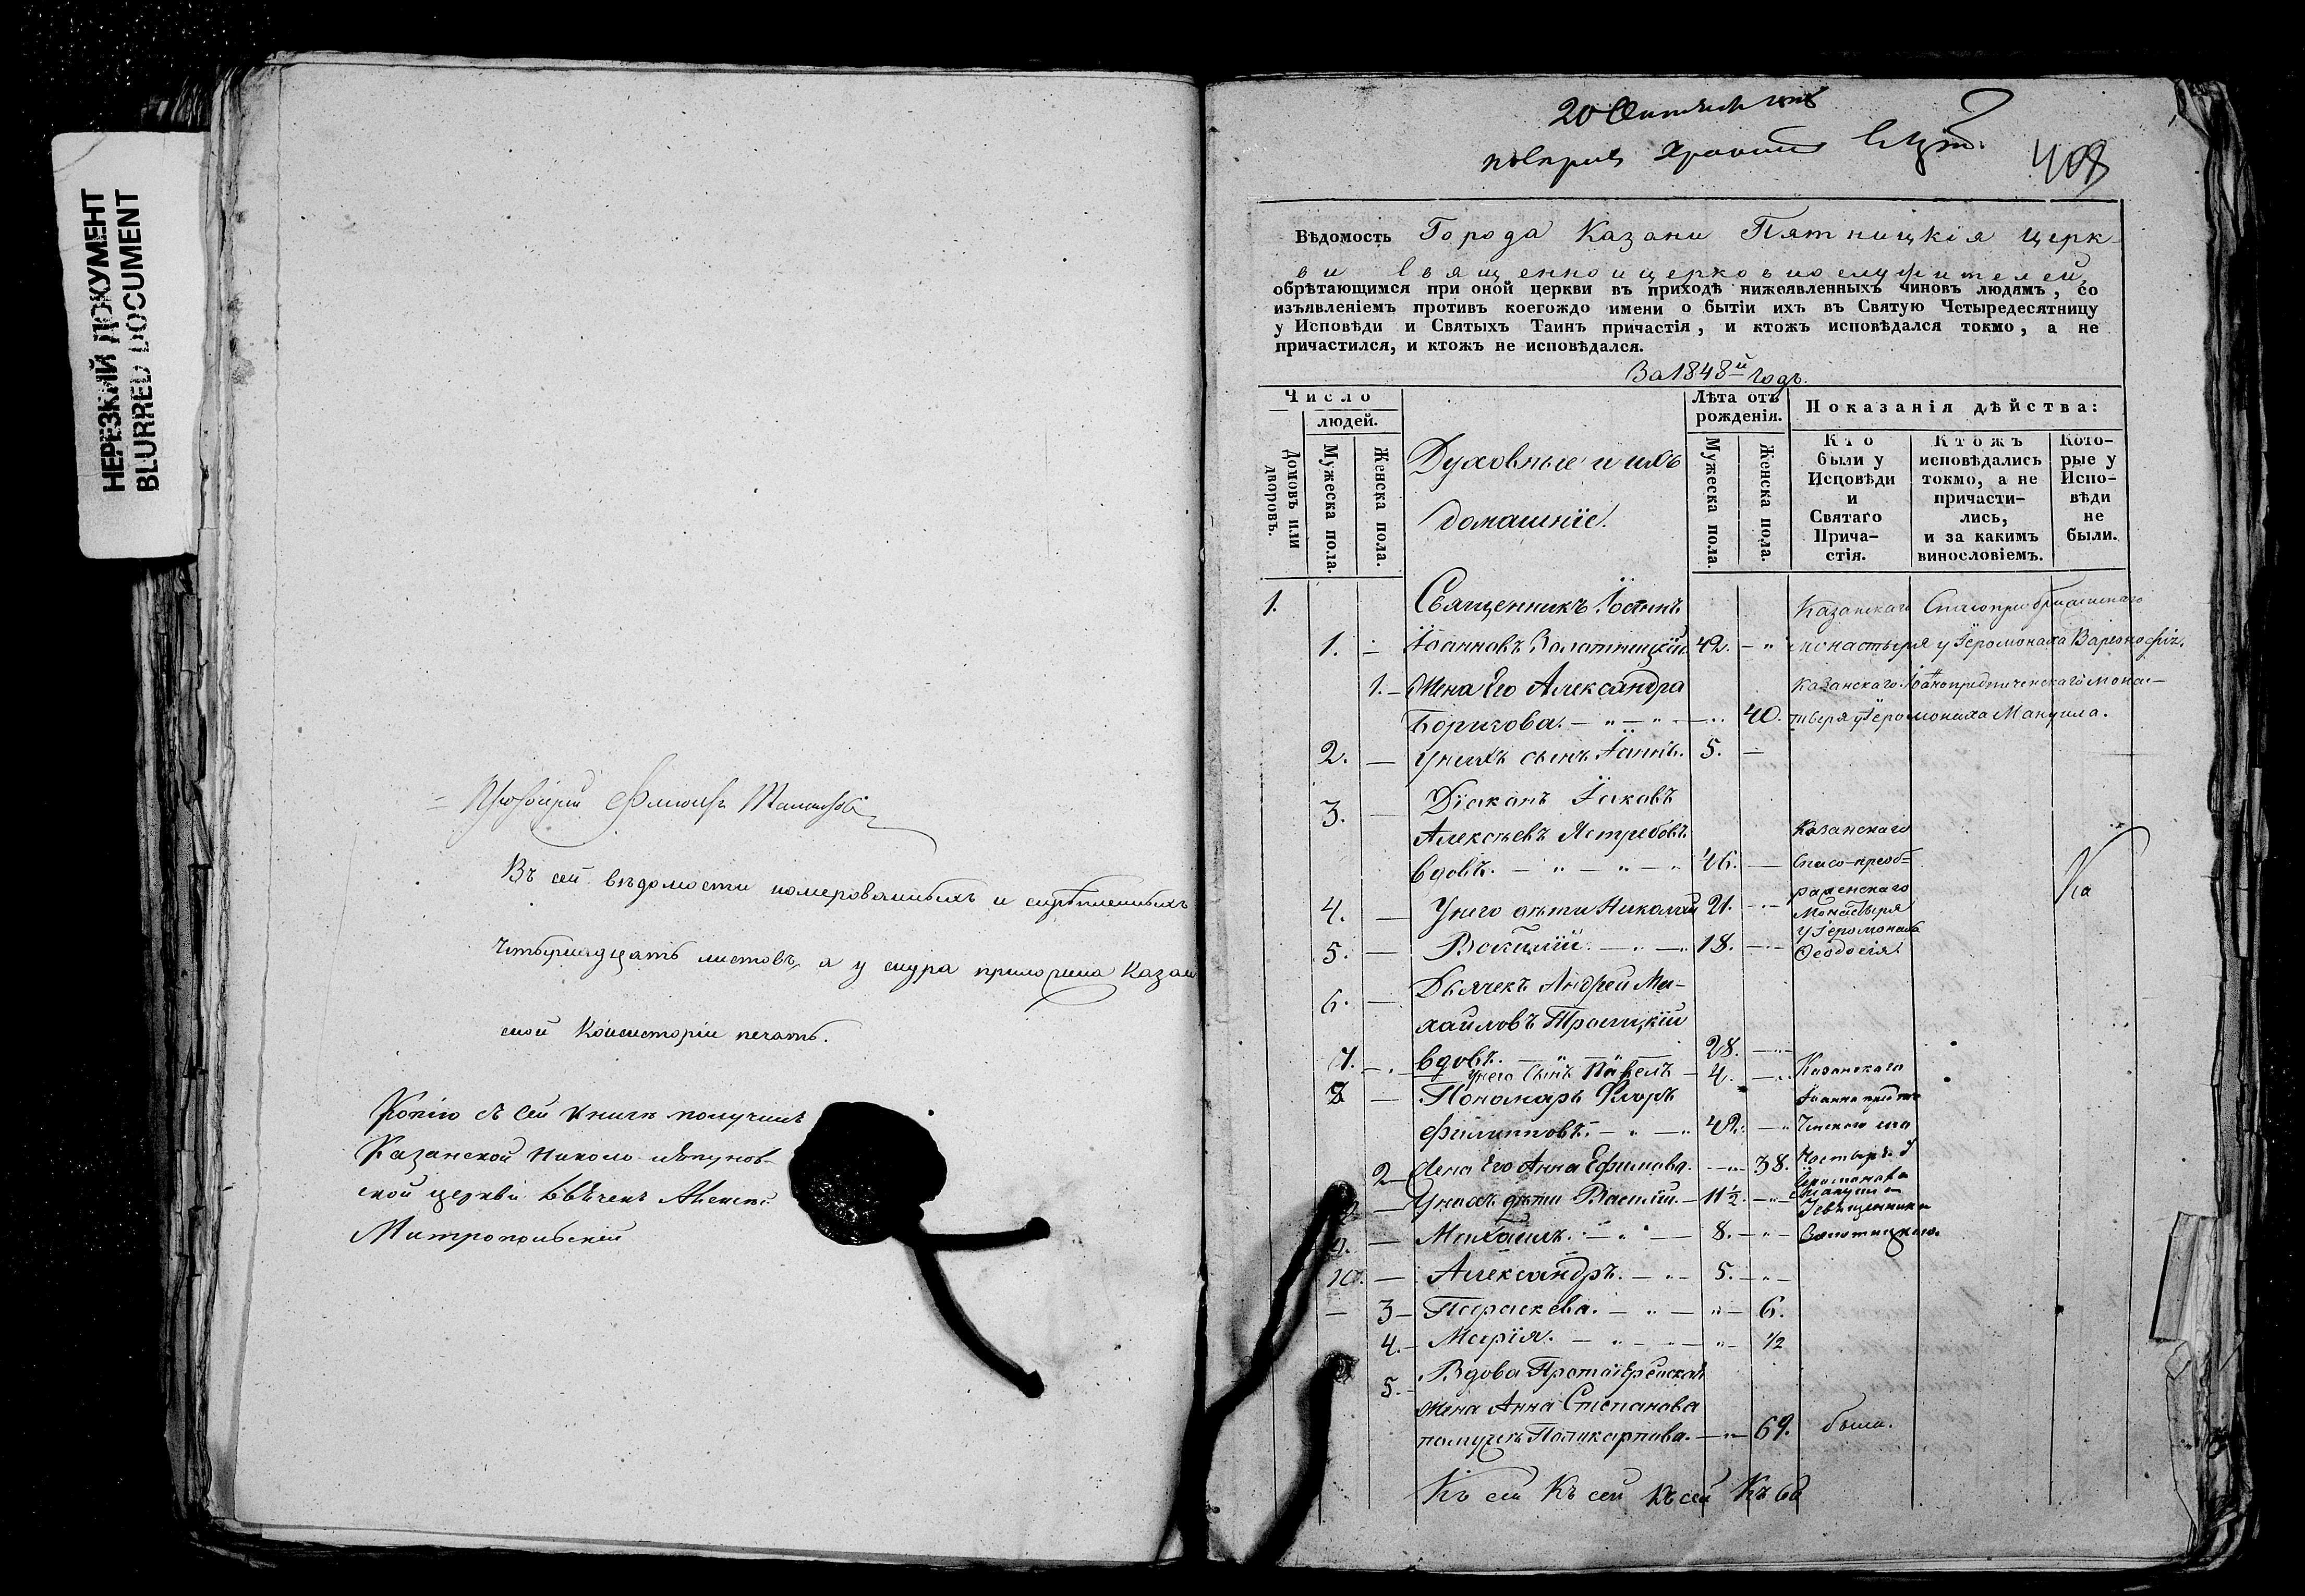 НЕРЕЗКИЙ ДОКУМЕНТ
BLURRED DOCUMENT
Въ сей вѣдомости номерованныхъ и скрѣпленныхъ
четырнадцать листовъ, а у снура приложена Казан
ской Консисторіи печать.
Копію съ сей книги получилъ
Казанской Николо-
ской церкви
Митропольскій
20
408
Вѣдомость Города Казани Пятницкія церк-
ви Священно и церковнослужителей,
обрѣтающимся при оной церкви въ приходѣ нижеявленныхъ чиновъ людямъ, со
изъявленіемъ противъ коегождо имени о бытіи ихъ въ Святую Четыредесятницу
у Исповѣди и Святыхъ Таинъ причастія, и ктожъ исповѣдался токмо, а не
причастился, и ктожъ не исповѣдался.
За 1848й годъ.
Число
людей.
Домовъ или дворовъ.
Мужеска пола.
Женска пола.
Духовные и ихъ
домашніе.
Лѣта отъ
рожденія.
Мужеска пола.
Женска пола.
Показанія дѣйства:
Кто
были у
Исповѣди
и
Святаго
Прича-
стія.
Ктожъ
исповѣдались
токмо, а не
причасти-
лись,
и за какимъ
винословіемъ.
Кото-
рые у
Испо-
вѣди
не
были.
1. Священникъ Іоаннъ Казанскаго Спасопреображенскаго
1. — Іоанновъ Золотницкій. 42. — " монастыря у Іеромонаха
1. — Жена Его Александра Казанскаго Іоаннопредтеченскаго мона-
Борисова. — " — " — 40. стыря у Іеромонаха Мануила.
2. — У нихъ сынъ Іоаннъ. 5. —
3. — Діаконъ Іаковъ
Алексѣевъ Ястребовъ Казанскаго
вдовъ. — " — " — 46. — Спасо-преоб-
раженскаго
4. — У него дѣти Николай 21. — Монастыря
у Іеромонаха
5. — Василій. — " — 18. — Ѳеодосія.
Ка
6. — Дьячекъ Андрей Ми-
хайловъ Троицкій
вдовъ. — 28. —
7. — У него Сынъ Павелъ — 4. — Казанскаго
8 — Пономарь Флоръ Іоанно предте-
Филипповъ. — " — 42. — ческаго мо
2 — Жена Его Анна Ефимова. — 38. настыря у
Іеромонаха
— У нихъ дѣти Василій. — 11 ½. — Мануила
И священника
9. — Михаилъ. — " — 8. — " — Золотницкаго.
10. — Александръ. — " — 5. — " —
— 3 — Параскева. — " — " — 6.
4. — Марія. — " — " — ½
5. Вдова Протоіерейская
жена Анна Степанова
по мужѣ Поликарпова. — " — 69. была.
Къ сей Къ сей Къ сей Къ сей